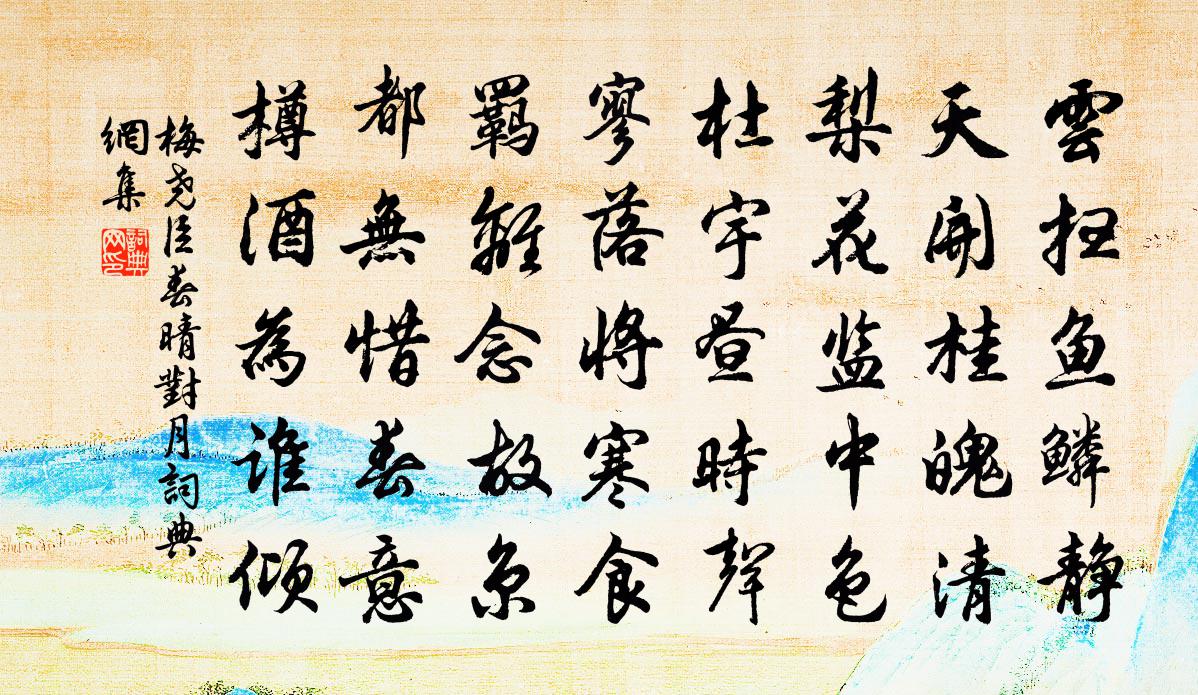 雲扫鱼鱗静
天開桂魄清
梨花监中色
杜宇昼時聲
寥落將寒食
羈離念故京
都無惜春意
樽酒為誰傾
梅尧臣春晴對月詞典
網集
詞典
网印